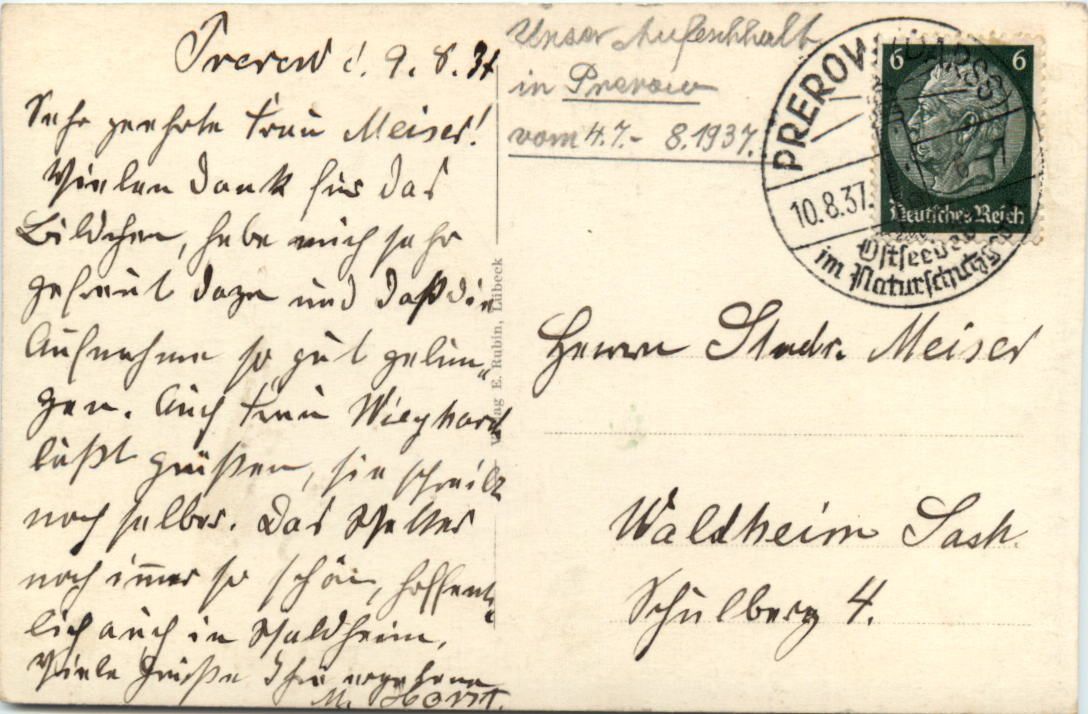 Prerow d. 9. 8. 37
Sehr geehrte Frau Meiser!
Vielen Dank für das
Bildchen, habe mich sehr
gefreut dazu und daß die
Aufnahme so gut gelun„
gen. Auch Frau Wieghardt
läßt grüßen, sie schreibt
noch selber. Das Wetter
noch immer so schön, hoffent„
lich auch in Waldheim,
Viele Grüße Ihre ergebene
M. Horst.
Unser Aufeschhalt
in Prerow
vom 4.7.- 8.1937.
Verlag E. Rubin, Lübeck
PREROW (DARSS)
10.8.37.
Ostseebad
im Naturschutzgeb.
6 6
Deutsches Reich
Herrn Stadr. Meiser
Waldheim Sach.
Schulberg 4.